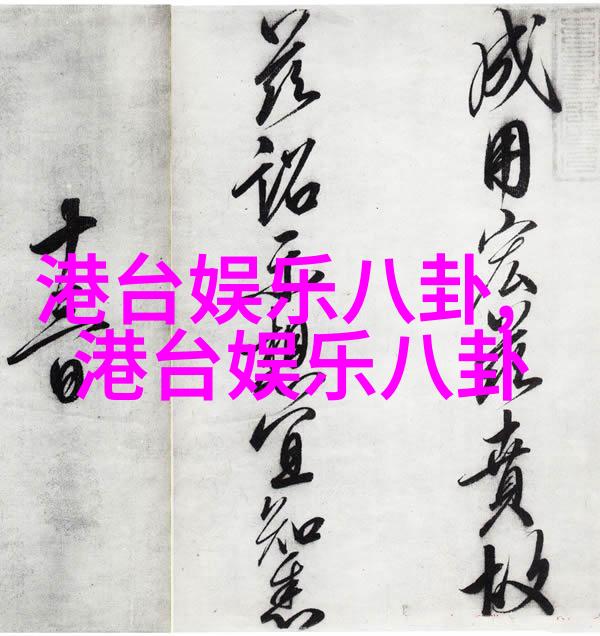 港台娱乐八卦,
港台娱乐八卦
成用宏兹賁故
兹詔示想宜知悉
十日